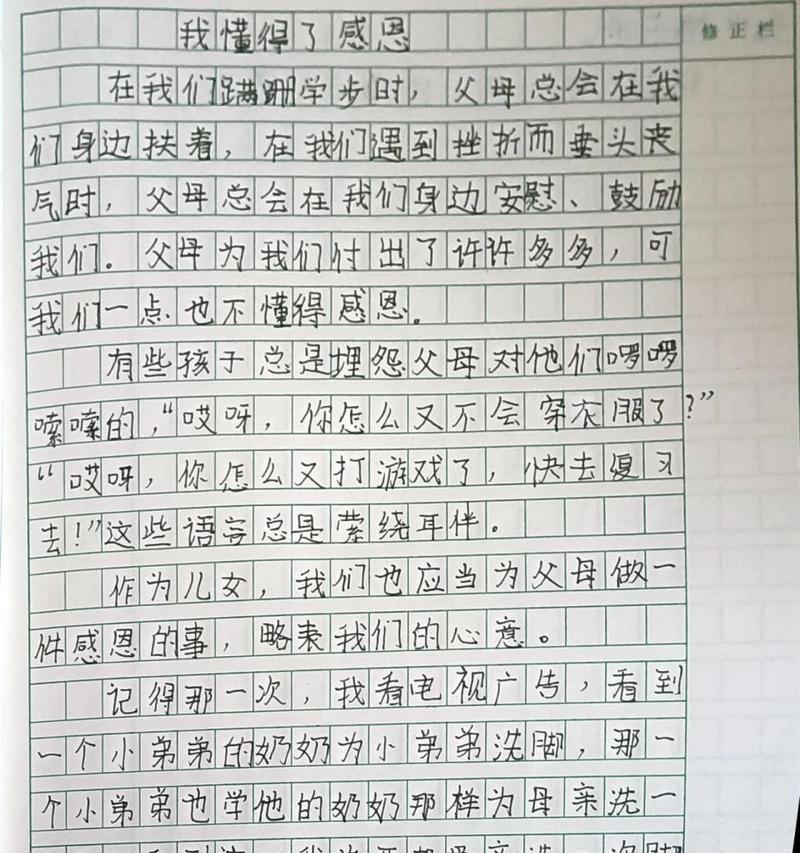 我懂得了感恩
修正栏
在我们蹒跚学步时，父母总会在我
们身边扶着，在我们遇到挫折而垂头丧
气时，父母总会在我们身边安慰、鼓励
我们。父母为我们付出了许许多多，可
我们一点也不懂得感恩。
有些孩子总是埋怨父母对他们啰啰
嗦嗦的，“哎呀，你怎么又不会穿衣服了？”
“哎呀，你怎么又打游戏了，快去复习
去！”这些语言总是萦绕耳伴。
作为儿女，我们也应当为父母做一
件感恩的事，略表我们的心意。
记得那一次，我看电视广告，看到
一个小弟弟的奶奶为小弟弟洗脚，那一
个小弟弟也学他的奶奶那样为母亲洗一